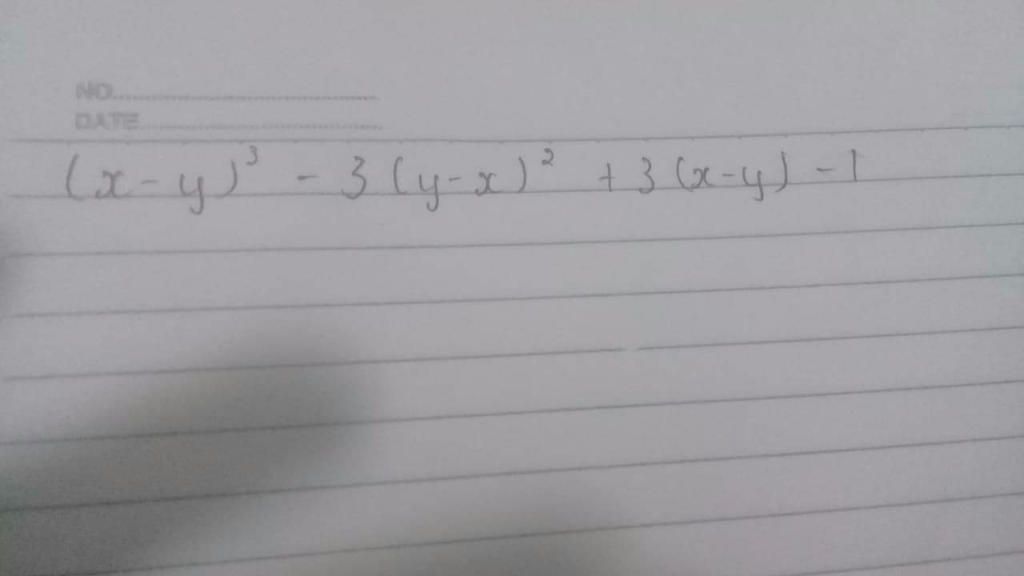 NO
DATE
(x-y)³ - 3(y-x)² + 3(x-y) - 1